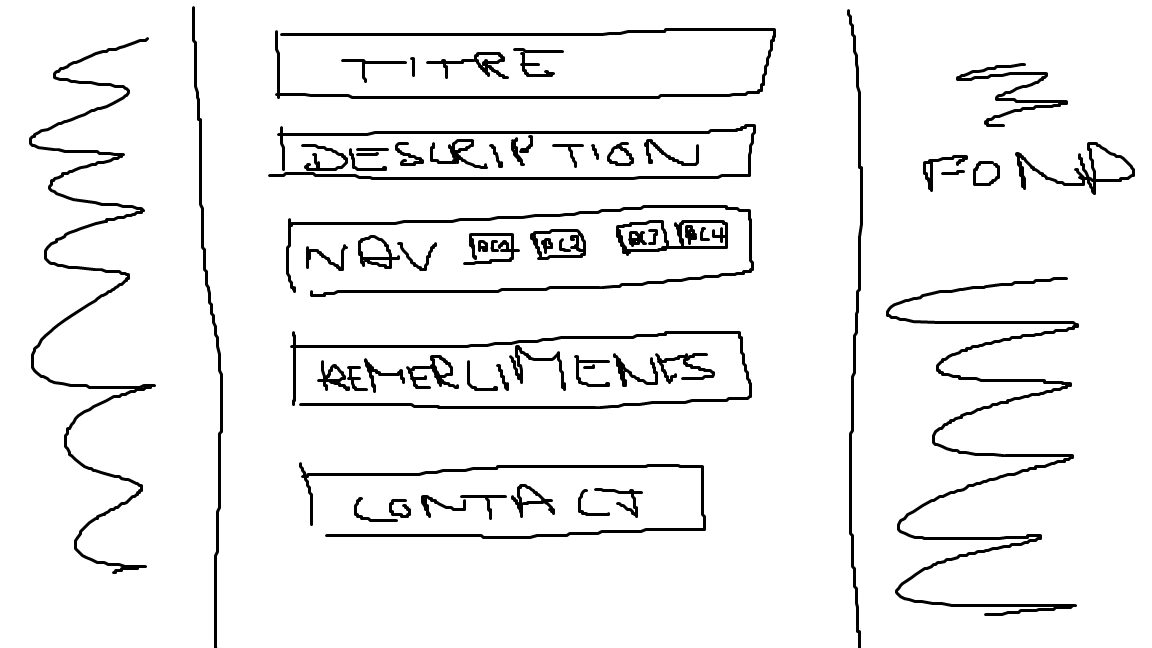 TITRE
DESCRIPTION
NAV BC1 BC2 BC3 BC4
REMERCIMENTS
CONTACT
FOND